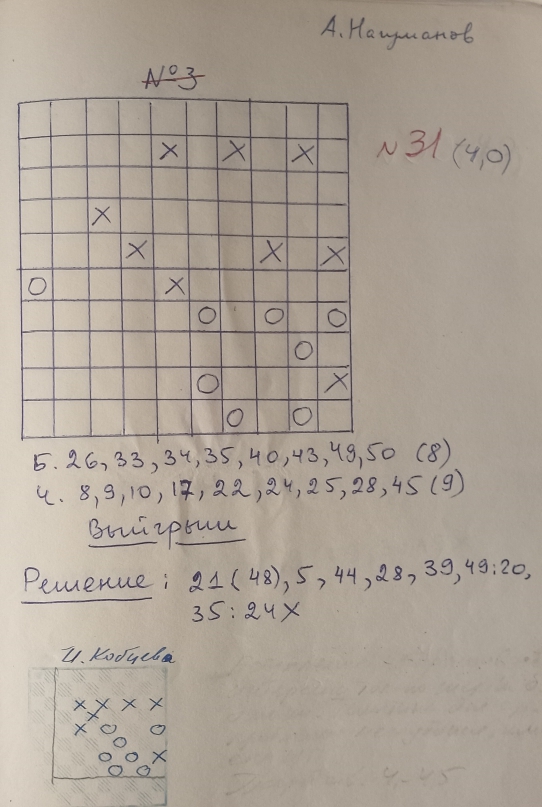 А. Нацманов
№3
№31 (4,0)
Б. 26, 33, 34, 35, 40, 43, 49, 50 (8)
Ч. 8, 9, 10, 17, 22, 24, 25, 28, 45 (9)
Выйгрыш
Решение: 21 (48), 5, 44, 28, 39, 49:20,
35:24X
И. Кобцева